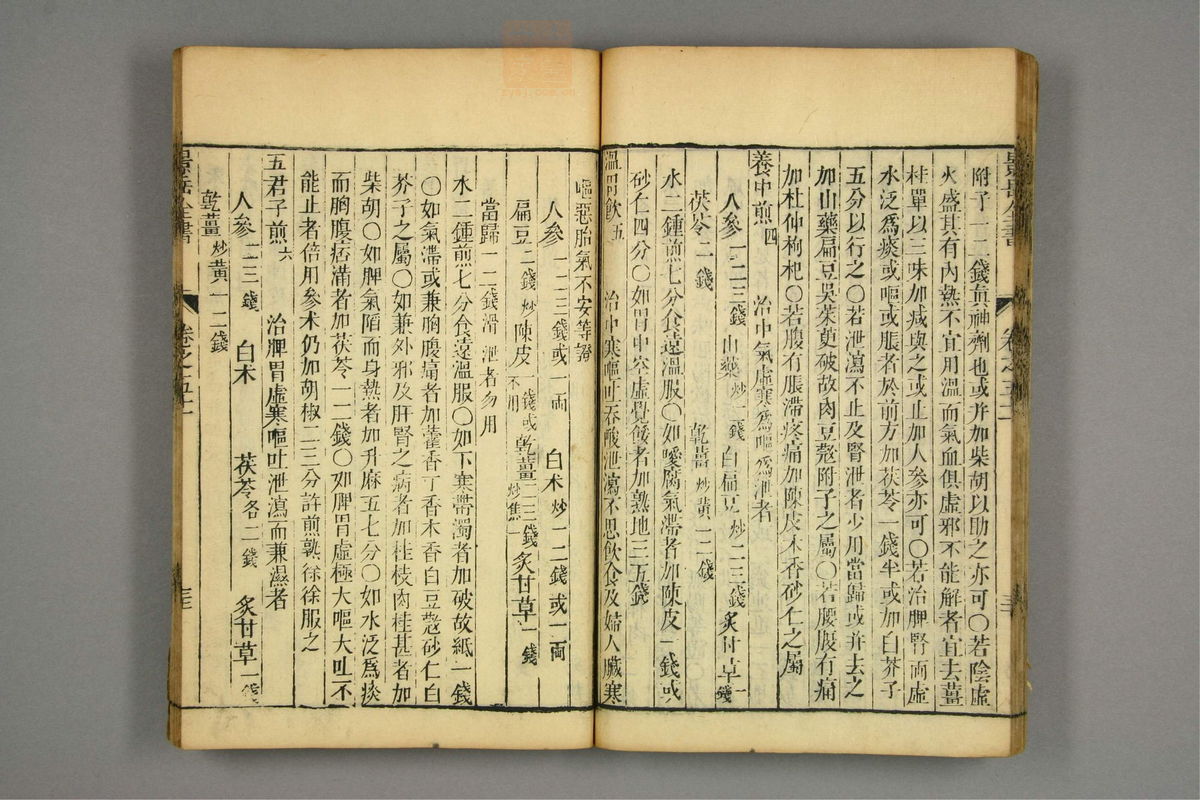 附子一二錢眞神劑也或并加柴胡以助之亦可〇若陰虛
火盛其有内熱不宜用溫而氣血俱虛邪不能解者宜去薑
桂單以三味加减與之或止加人參亦可〇若治脾腎兩虛
水泛爲痰或嘔或脹者於前方加茯苓一錢半或加白芥子
五分以行之〇若泄瀉不止及腎泄者少用當歸或并去之
加山藥扁豆吳茱萸破故肉豆蔻附子之屬〇若腰腹有痛
加杜仲枸杞〇若腹有脹滯疼痛加陳皮木香砂仁之屬
養中煎四 治中氣虛寒爲嘔爲泄者
人參一二三錢 山藥炒二錢 白扁豆炒二三錢 炙甘草一錢
茯苓二錢 乾薑炒黃一二錢
水二鍾煎七分食遠溫服〇如噯腐氣滯者加陳皮一錢或
砂仁四分〇如胃中空虛覺餒者加熟地三五錢
溫胃飲五 治中寒嘔吐吞酸泄瀉不思飲食及婦人臟寒
嘔惡胎氣不安等證
人參一二三錢或一兩 白术炒一二錢或一兩
扁豆二錢炒 陳皮一錢或不用 乾薑炒焦一二三錢 炙甘草一錢
當歸一二錢滑泄者勿用
水二鍾煎七分食遠溫服〇如下寒帶濁者加破故紙一錢
〇如氣滯或兼胸腹痛者加藿香丁香木香白豆蔻砂仁白
芥子之屬〇如兼外邪及肝腎之病者加桂枝肉桂甚者加
柴胡〇如脾氣陷而身熱者加升麻五七分〇如水泛爲痰
而胸腹痞滿者加茯苓一二錢〇如脾胃虛極大嘔大吐不
能止者倍用參术仍加胡椒二三分許煎熟徐徐服之
五君子煎六 治脾胃虛寒嘔吐泄瀉而兼濕者
人參二三錢 白术 茯苓各二錢 炙甘草一錢
乾薑炒黃一二錢
景岳全書 卷之五十一